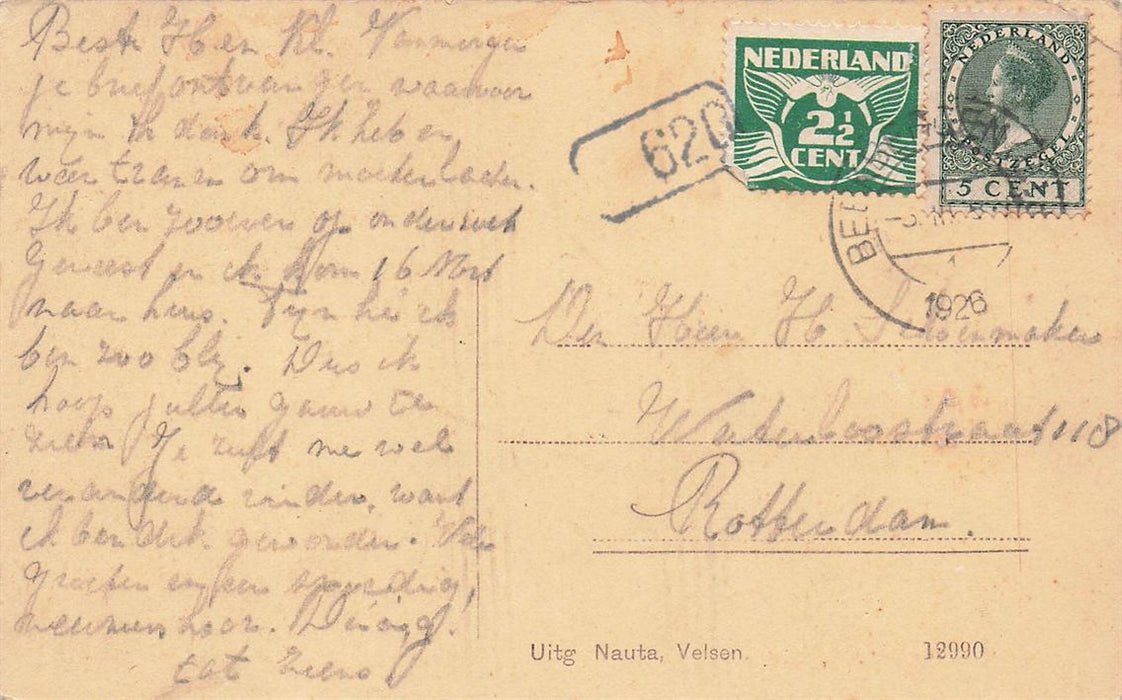 Beste H en Kl. Vanmorgen
je brief ontvangen waarvoor
mijn dank. Ik heb en
weer tranen om moeder
Ik ben zooeven op onderzoek
geweest en ik kom 16 Mrt
naar huis. Fijn hé ik
ben zoo blij. Dus ik
hoop jullie gauw te
zien. Je zult me wel
veranderd vinden, want
ik ben dik geworden. Vele
groeten en een spoedig
hoor.
tot ziens
NEDERLAND
2½
CENT
NEDERLAND
POSTZEGEL
5 CENT
620
1926
Den Heer H Schoenmaker
Waterloostraat 118
Rotterdam.
Uitg Nauta, Velsen.
12990